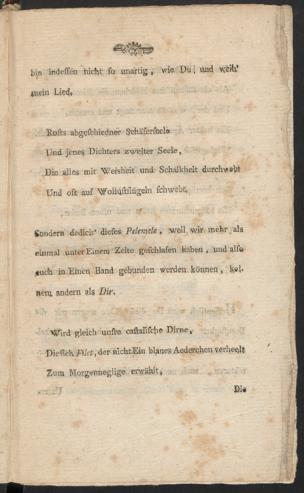 bin indessen nicht so unartig, wie Du, und weih'
mein Lied,
Rosts abgeschiedner Schäferseele
Und jenes Dichters zweiter Seele,
Die alles mit Weisheit und Schalkheit durchwebt
Und oft auf Wollustflügeln schwebt.
Sondern dedicir' dieses Pelemele, weil wir mehr als
einmal unter Einem Zelte geschlafen haben, und also
auch in Einen Band gebunden werden können, kei-
nem andern als Dir.
Wird gleich unsre castalische Dirne,
Die sich Filet, der nicht Ein blaues Aederchen verheelt
Zum Morgenneglige erwählt,
Die